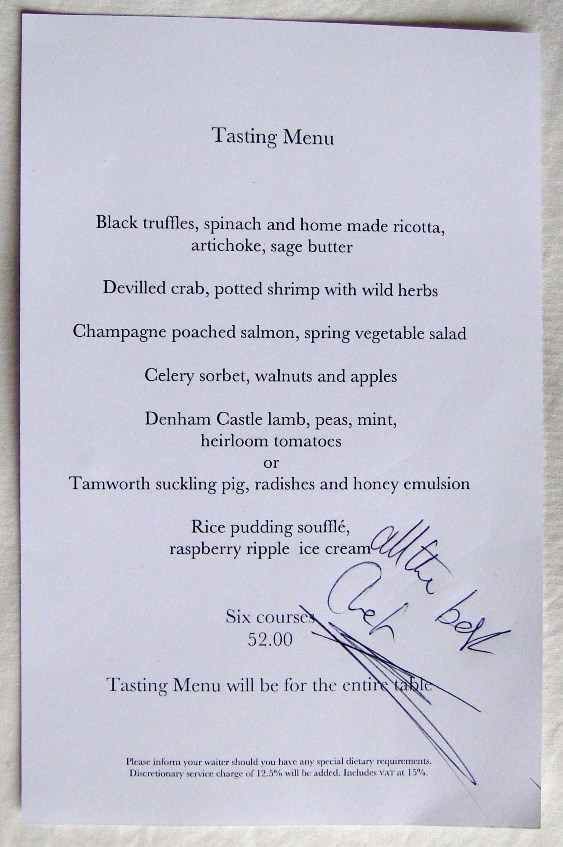 Tasting Menu
Black truffles, spinach and home made ricotta,
artichoke, sage butter
Devilled crab, potted shrimp with wild herbs
Champagne poached salmon, spring vegetable salad
Celery sorbet, walnuts and apples
Denham Castle lamb, peas, mint,
heirloom tomatoes
or
Tamworth suckling pig, radishes and honey emulsion
Rice pudding soufflé,
raspberry ripple ice cream
all the best
Chef
Six courses
52.00
Tasting Menu will be for the entire table
Please inform your waiter should you have any special dietary requirements.
Discretionary service charge of 12.5% will be added. Includes VAT at 15%.